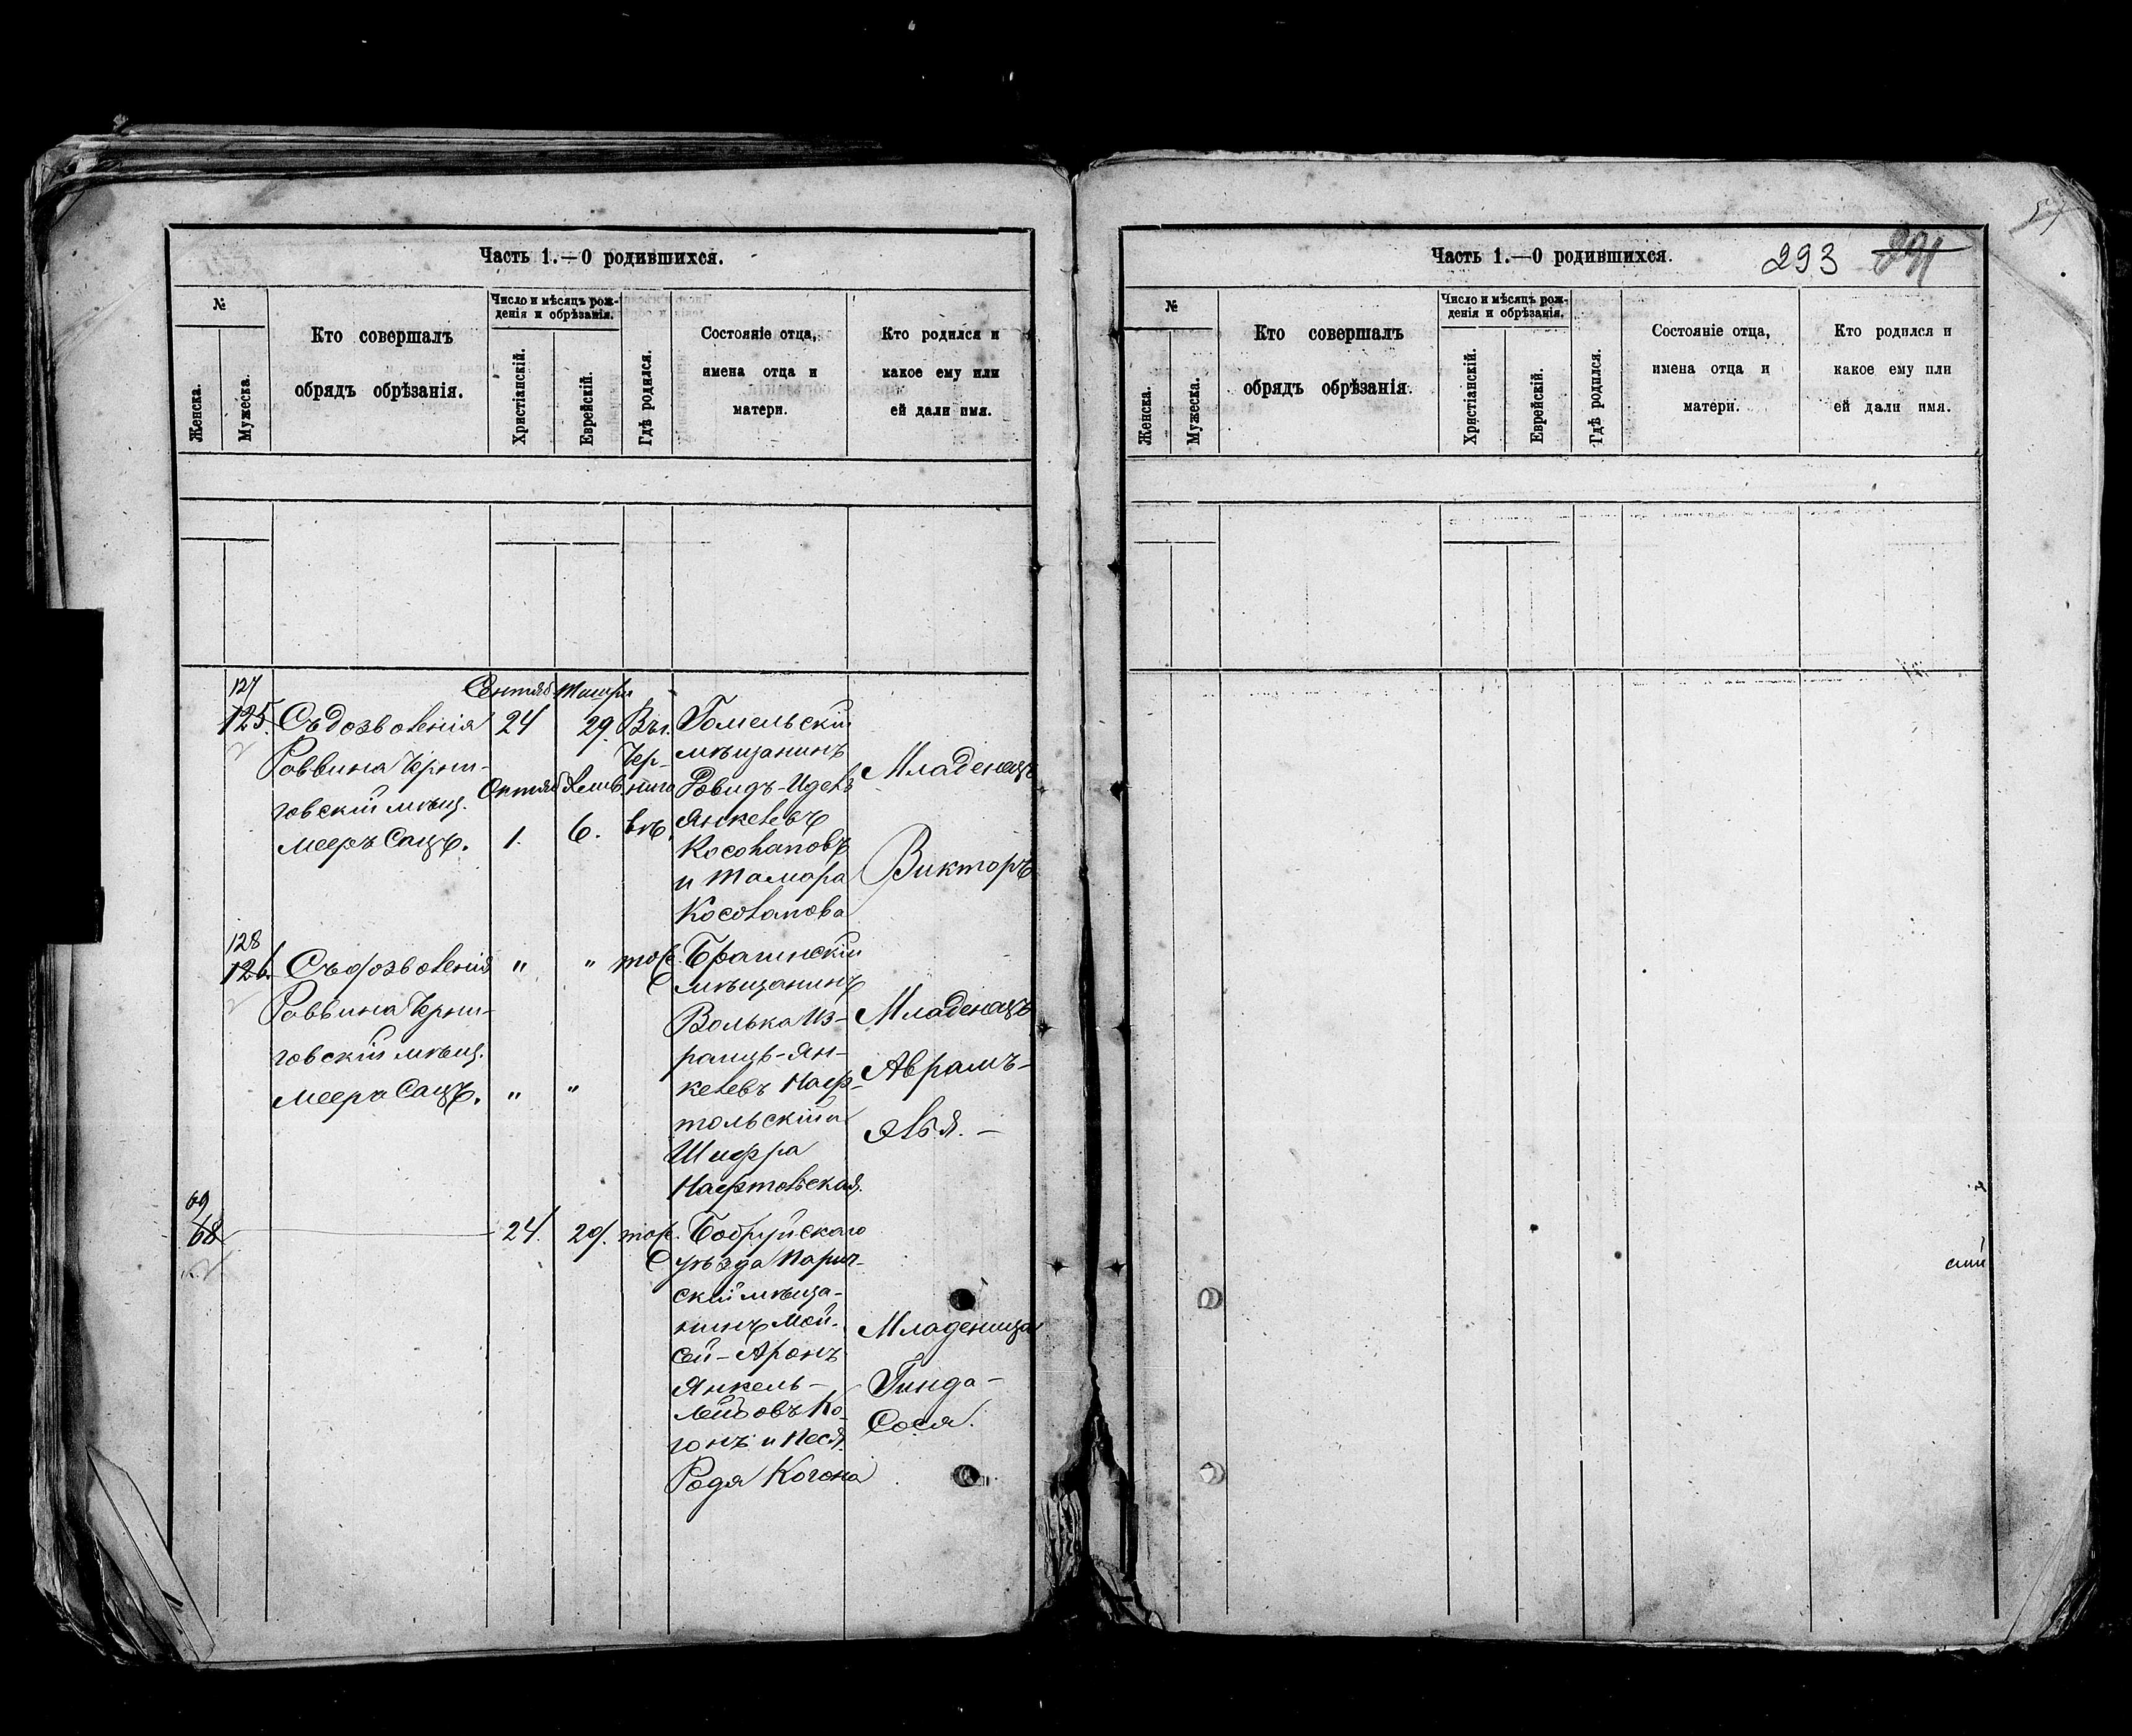 Часть 1.—О родившихся.
№
Женска.
Мужеска.
Кто совершалъ
обрядъ обрѣзанія.
Число и мѣсяцъ рож-
денія и обрѣзанія.
Христіанскій.
Еврейскій.
Гдѣ родился.
Состояніе отца,
имена отца и
матери.
Кто родился и
какое ему или
ей дали имя.
127
125.
Съ дозволенія
Раввина Черни-
говскій мѣщ.
Мееръ Сацъ.
Сентяб
24
Октяб
1.
Тишри
29
6.
Въ г.
Чер-
ниго
вѣ.
Гомельскій
мѣщанинъ
Янкелевъ
и Тамара
Младенецъ
Викторъ
128
126.
Съ дозволенія
Раввина Черни-
говскій мѣщ.
Мееръ Сацъ.
"
"
"
"
тоже
Брагинскій
мѣщанинъ
Волька Из-
раиль-Ян-
келевъ Наф-
тольскій и
Шифра
Младенецъ
Аврамъ-
69
68
24.
29.
тоже
Бобруйскаго
уѣзда Парич-
скій мѣща-
нинъ Мой-
сей-Аронъ
Янкель-
Лейбовъ Ко-
ганъ и Песя
Родя Когона
Младеница
Гинда-
Сося.
Часть 1.—О родившихся.
293
291
№
Женска.
Мужеска.
Кто совершалъ
обрядъ обрѣзанія.
Число и мѣсяцъ рож-
денія и обрѣзанія.
Христіанскій.
Еврейскій.
Гдѣ родился.
Состояніе отца,
имена отца и
матери.
Кто родился и
какое ему или
ей дали имя.